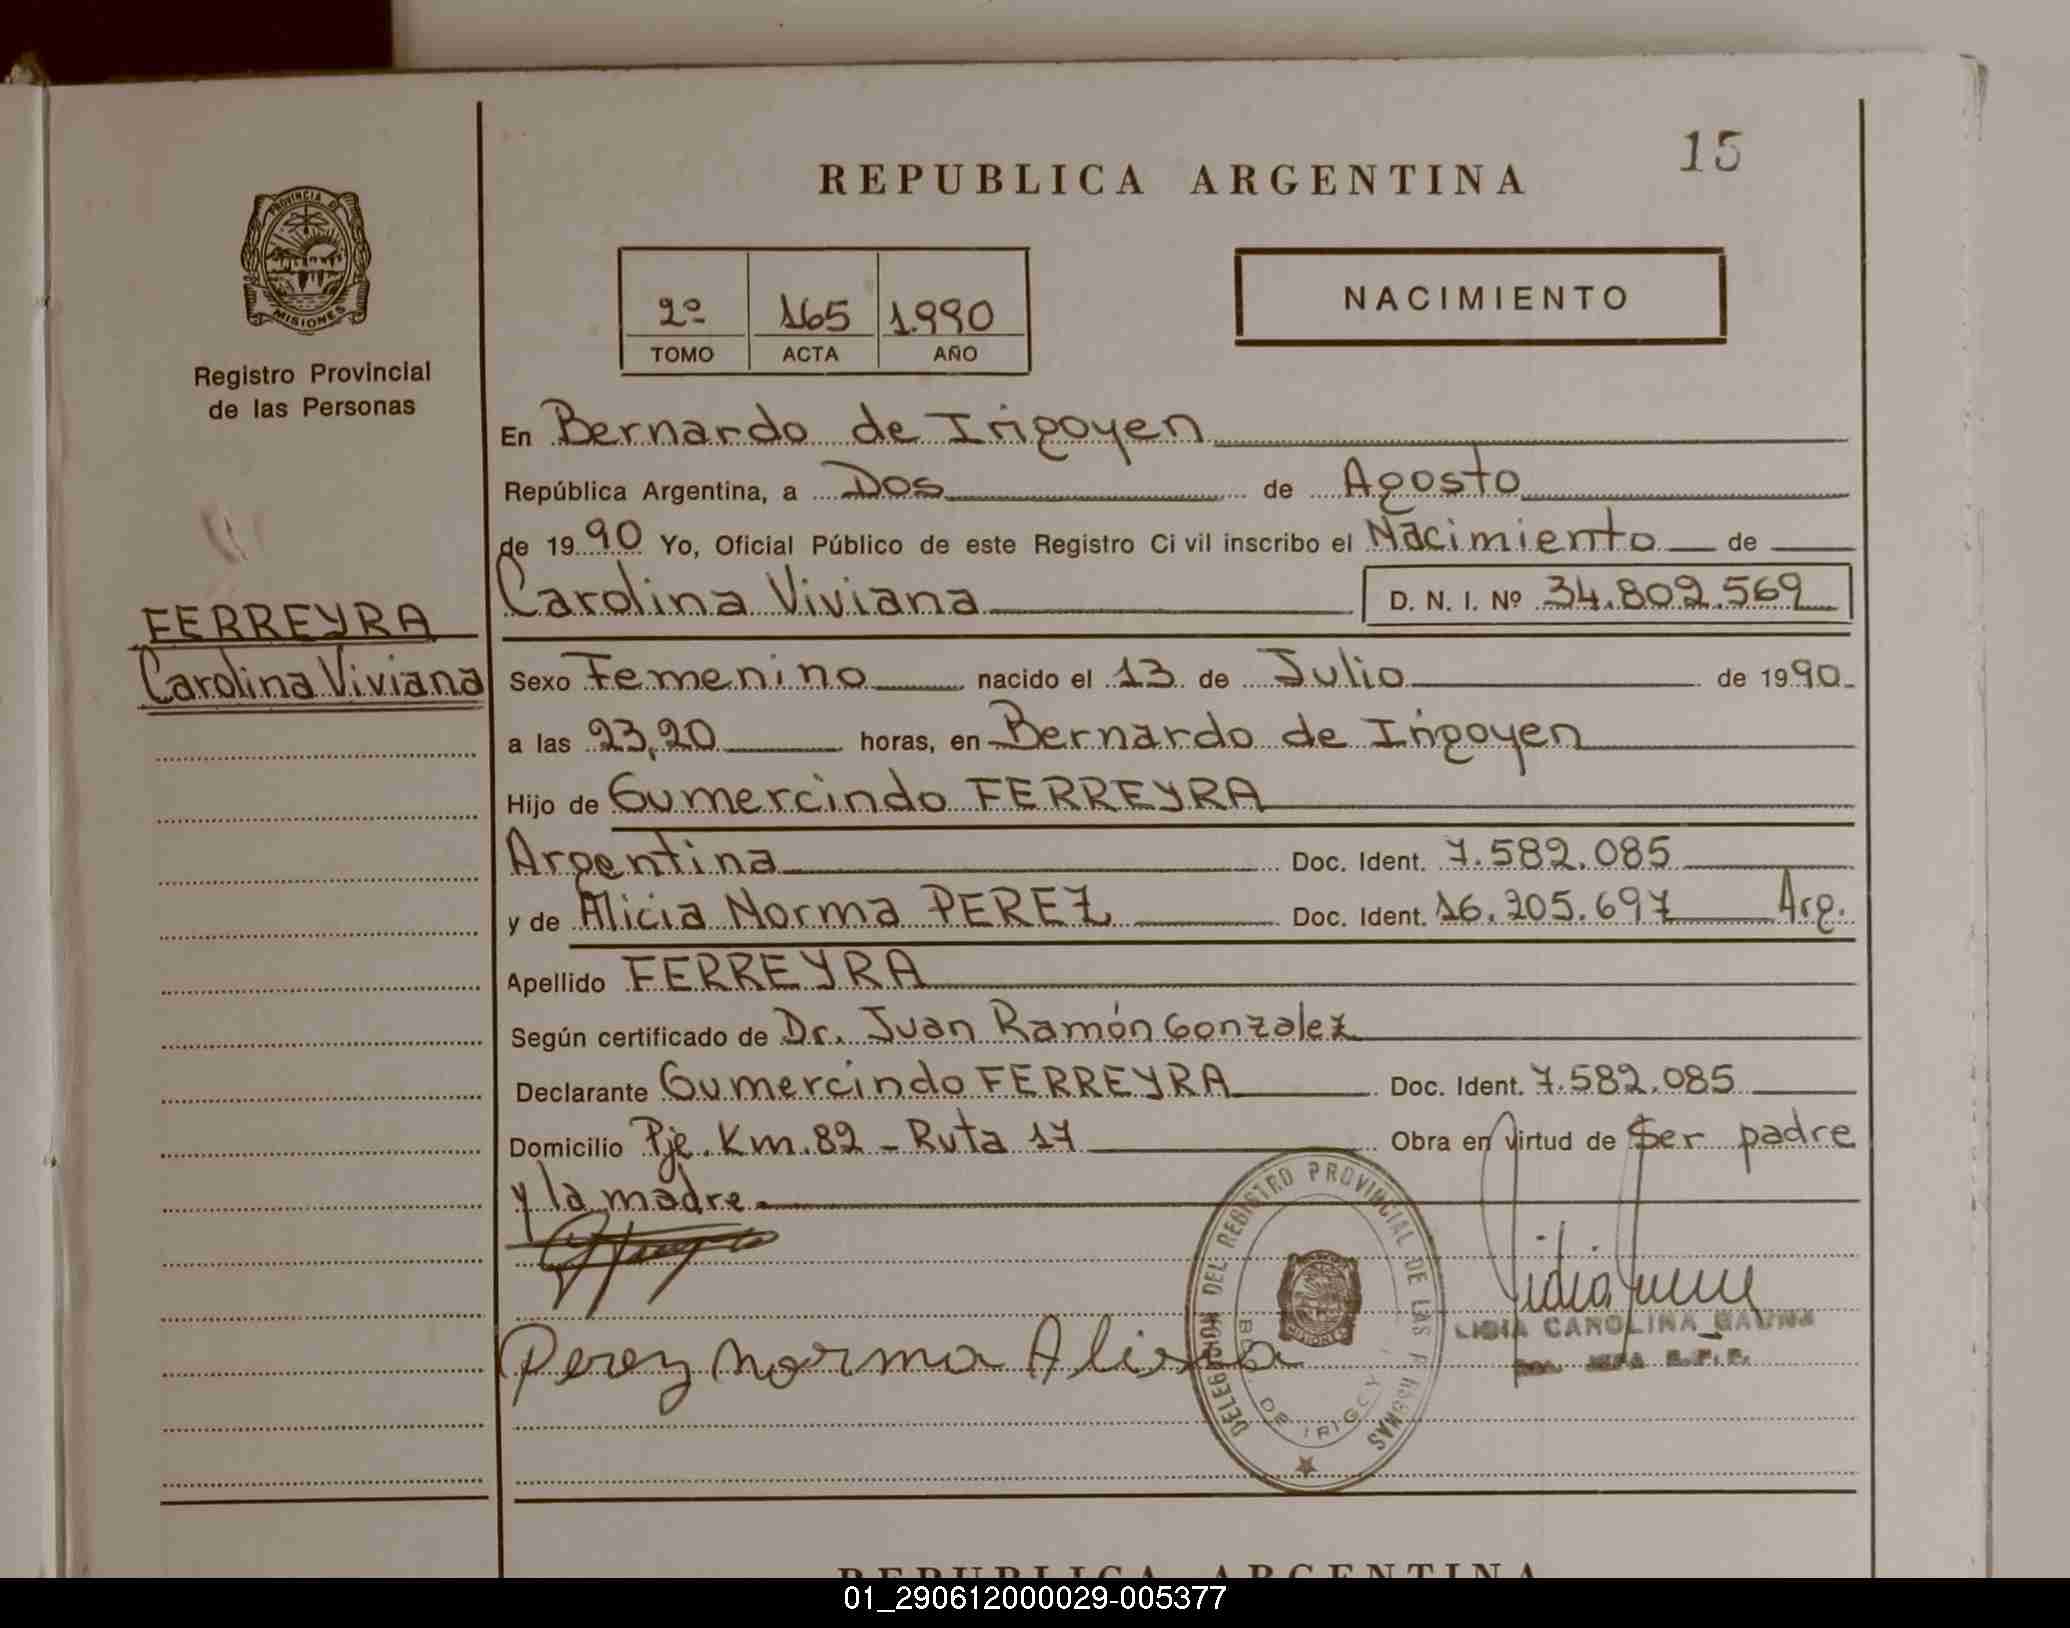 15
REPUBLICA ARGENTINA
PROVINCIA DE
MISIONES
Registro Provincial
de las Personas
2º 165 1.990
TOMO ACTA AÑO
NACIMIENTO
En Bernardo de Irigoyen
República Argentina, a Dos de Agosto
de 19 90 Yo, Oficial Público de este Registro Civil inscribo el Nacimiento de
Carolina Viviana D. N. I. Nº 34.802.569
FERREYRA
Carolina Viviana
Sexo Femenino nacido el 13 de Julio de 19 90
a las 23,20 horas, en Bernardo de Irigoyen
Hijo de Gumercindo FERREYRA
Argentina Doc. Ident. 7.582.085
y de Alicia Norma PEREZ Doc. Ident. 16.205.697 Arg.
Apellido FERREYRA
Según certificado de Dr. Juan Ramón Gonzalez
Declarante Gumercindo FERREYRA Doc. Ident. 7.582.085
Domicilio Pje. Km. 82 - Ruta 17 Obra en virtud de Ser padre
y la madre.
DELEGACION DEL REGISTRO PROVINCIAL DE LAS PERSONAS
BDO DE IRIGOY
MISIONES
LIDIA CAROLINA GAUNA
JEFA R.P.P.
Perez Norma Alicia
REPUBLICA ARGENTINA
01_290612000029-005377